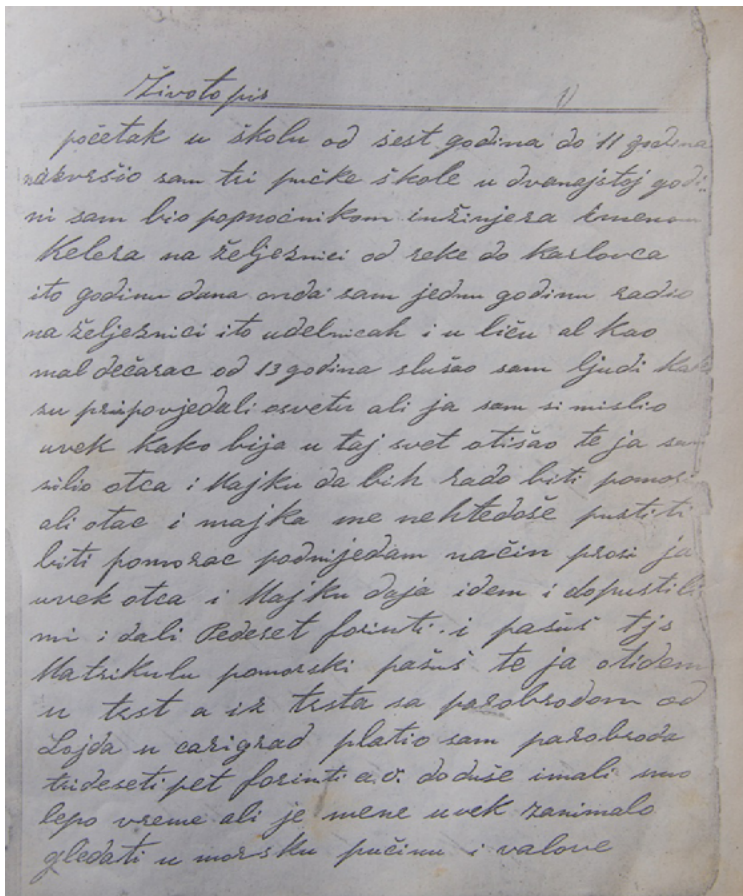 Životopis 1)
početak u školu od šest godina do 11 godina
izavršio sam tri pučke škole u dvanajstoj godi-
ni sam bio popmoćnikom inžinjera imenom
Kelera na željeznici od reke do Karlovca
ito godinu dana onda sam jednu godinu radio
na željeznici ito udelnicah i u liču al kao
mal dečarac od 13 godina slušao sam ljudi kak
su pripovjedali osvetu ali ja sam si mislio
uvek kako bija u taj svet otišao te ja sam
silio otca i Majku da bih rado biti pomor
ali otac i majka me nehtedoše pustiti
biti pomorac podnijedam način prosi ja
uvek otca i Majku daja idem i dopustili
mi i dali Pedeset forinti i pašuš tjs
Matrikulu pomorski pašuš te ja otidem
u trst a iz trsta sa parobrodom od
Lojda u carigrad platio sam paroBroda
trideseti pet forinti a.v. do duše imali smo
lepo vreme ali je mene uvek zanimalo
gledati u morsku pučinu i valove